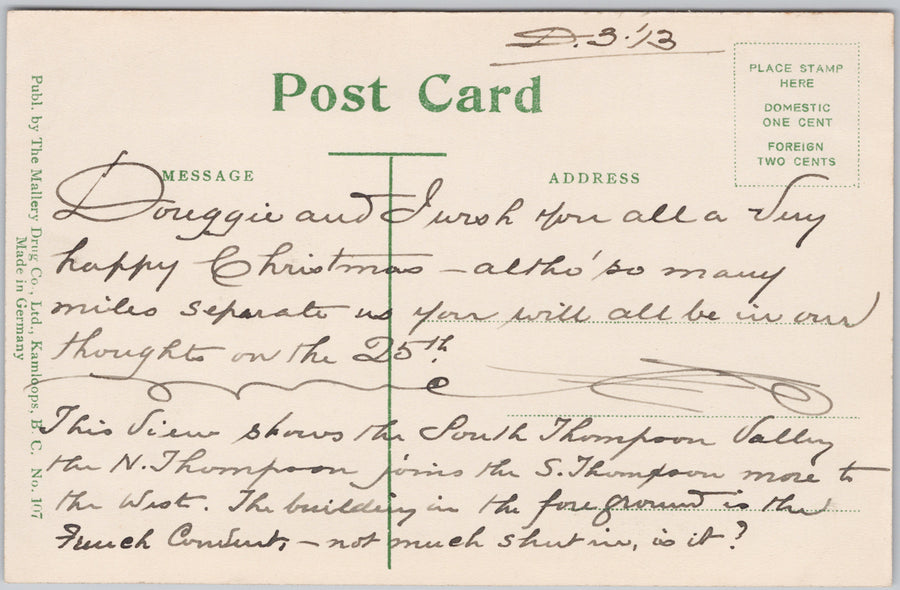 D. 3. '13
Post Card
PLACE STAMP
HERE
DOMESTIC
ONE CENT
FOREIGN
TWO CENTS
MESSAGE
ADDRESS
Douggie and I wish you all a Very
happy Christmas – altho' so many
miles separate us your will all be in our
thoughts on the 25th.
This View shows the South Thompson Valley
the N. Thompson joins the S. Thompson more to
the West. The building in the foreground is the
French Convent, – not much shut in, is it?
Publ. by The Mallery Drug Co., Ltd., Kamloops, B. C. No. 107
Made in Germany